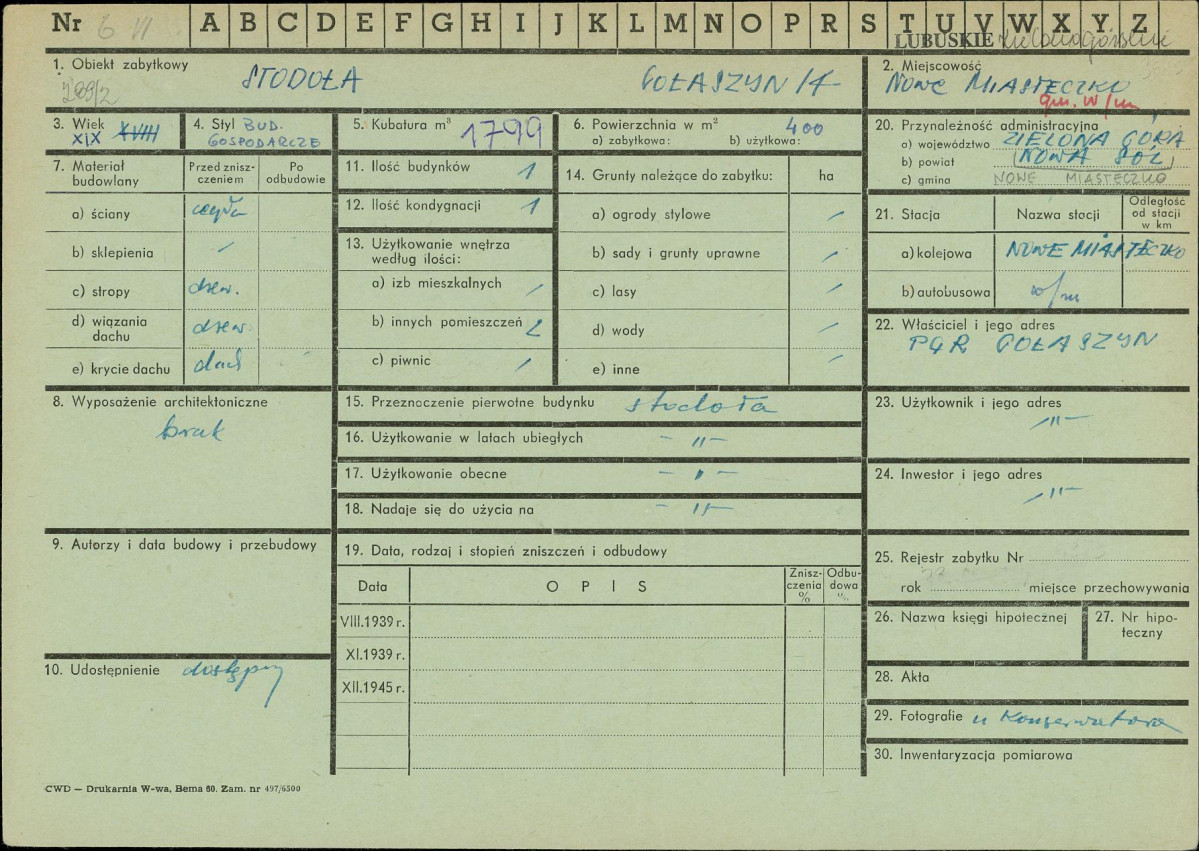 Nr 6 VI A B C D E F G H I J K L M N O P R S T U V W X Y Z
LUBUSKIE
1. Obiekt zabytkowy
STODOŁA GOŁASZYN 14
289/2
2. Miejscowość
NOWE MIASTECZKO
gm. w/m
3. Wiek XVIII
XIX
4. Styl BUD.
GOSPODARCZE
5. Kubatura m³ 1799
6. Powierzchnia w m² 400
a) zabytkowa: b) użytkowa:
7. Materiał budowlany
Przed znisz-
czeniem
Po
odbudowie
a) ściany cegła
b) sklepienia /
c) stropy drew.
d) wiązania
dachu drew.
e) krycie dachu dach
8. Wyposażenie architektoniczne
brak
9. Autorzy i data budowy i przebudowy
10. Udostępnienie dostępny
11. Ilość budynków 1
12. Ilość kondygnacji 1
13. Użytkowanie wnętrza
według ilości:
a) izb mieszkalnych /
b) innych pomieszczeń 2
c) piwnic /
14. Grunty należące do zabytku: ha
a) ogrody stylowe /
b) sady i grunty uprawne /
c) lasy /
d) wody /
e) inne /
15. Przeznaczenie pierwotne budynku stodoła
16. Użytkowanie w latach ubiegłych – " –
17. Użytkowanie obecne – " –
18. Nadaje się do użycia na – " –
19. Data, rodzaj i stopień zniszczeń i odbudowy
Data OPIS
Znisz-
czenia
%
Odbu-
dowa
%
VIII.1939 r.
XI.1939 r.
XII.1945 r.
20. Przynależność administracyjna
a) województwo ZIELONA GÓRA
b) powiat (NOWA SÓL)
c) gmina NOWE MIASTECZKO
21. Stacja Nazwa stacji
Odległość
od stacji
w km
a) kolejowa NOWE MIASTECZKO
b) autobusowa w/m
22. Właściciel i jego adres
PGR GOŁASZYN
23. Użytkownik i jego adres
– " –
24. Inwestor i jego adres
– " –
25. Rejestr zabytku Nr
rok miejsce przechowywania
26. Nazwa księgi hipotecznej
27. Nr hipo-
teczny
28. Akta
29. Fotografie u Konserwatora
30. Inwentaryzacja pomiarowa
CWD — Drukarnia W-wa, Bema 60. Zam. nr 497/6500